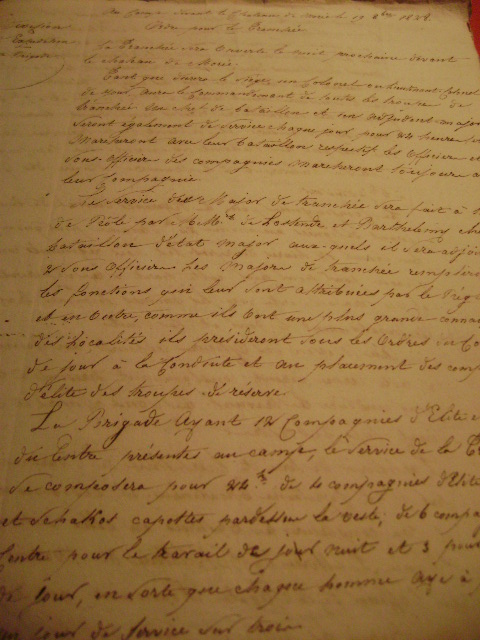 Au Camp devant le Château de Morée le 19 8bre 1828.
Ordre pour la Tranchée
Expédition
Brigade
La Tranchée sera ouverte la nuit prochaine devant
le château de Morée.
Tant que durera le Siège, un Colonel ou Lieutenant Colonel
de jour aura le Commandement de toutes les troupes de
tranchée. Un chef de bataillon et un adjudant major
seront également de service chaque jour pour 24 heures
Marcheront avec leur bataillon respectif les Officiers et
Sous Officiers des compagnies Marcheront toujours a
leur Compagnie.
Le Service de Major de tranchée sera fait à
de Rôle par M.M. de Lostende et Barthelemy
bataillon d'état major aux quels il sera adjoint
2 Sous Officiers. Les Majors de tranchée rempliront
les fonctions qui leur sont attribuées par le
et en Outre, comme ils ont une plus grande
des Localités ils présideront sous les Ordres du
de jour à la Conduite et au placement des
d'élite des troupes de réserve.
La Brigade Ayant 12 Compagnies d'Elite et
du Centre présentes au camp, le service de la
Se composera pour 24 h. de 4 compagnies d'Elite
et Schakos capottes pardessus la veste, de 6
Centre pour le travail de jour nuit et 3 pour
de Jour, en sorte que chaque homme aye à
un jour de service sur trois